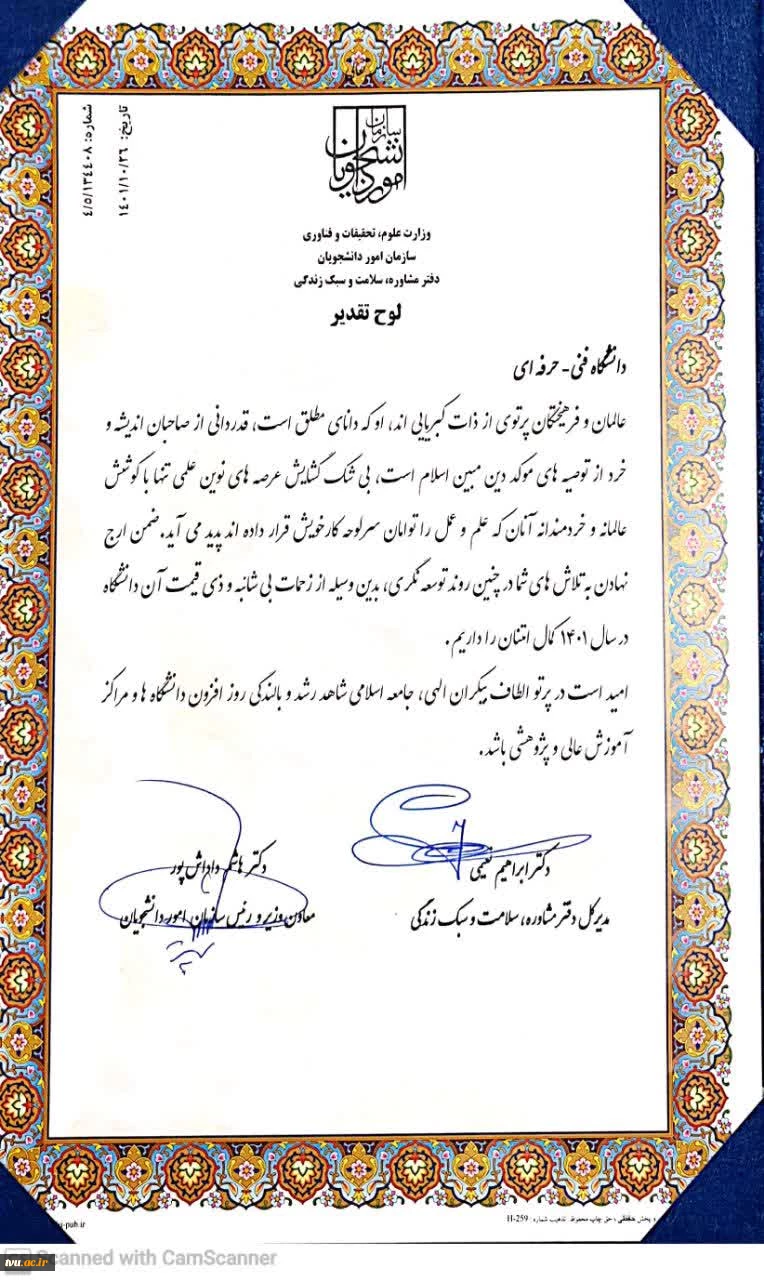 شماره: ۴/۵/۱۳۴۴۰۸
تاریخ: ۱۴۰۱/۱۰/۲۶
سازمان امور دانشجویان
وزارت علوم، تحقیقات و فناوری
سازمان امور دانشجویان
دفتر مشاوره، سلامت و سبک زندگی
لوح تقدیر
دانشگاه فنی - حرفه ای
عالمان و فرهیختگان پرتوی از ذات کبریایی اند، او که دانای مطلق است، قدردانی از صاحبان اندیشه و
خرد از توصیه های موکد دین مبین اسلام است، بی شک گشایش عرصه های نوین علمی تنها با کوشش
عالمانه و خردمندانه آنان که علم و عمل را توامان سرلوحه کار خویش قرار داده اند پدید می آید. ضمن ارج
نهادن به تلاش های شما در چنین روند توسعه نگری، بدین وسیله از زحمات بی شائبه و ذی قیمت آن دانشگاه
در سال ۱۴۰۱ کمال امتنان را داریم.
امید است در پرتو الطاف بیکران الهی، جامعه اسلامی شاهد رشد و بالندگی روز افزون دانشگاه ها و مراکز
آموزش عالی و پژوهشی باشد.
دکتر ابراهیم نعیمی
مدیرکل دفتر مشاوره، سلامت و سبک زندگی
دکتر هاشم داداش پور
معاون وزیر و رئیس سازمان امور دانشجویان
و پخش حقیقی : حق چاپ محفوظ. تذهیب شماره : H-259
-pub.ir
Scanned with CamScanner
tvu.ac.ir